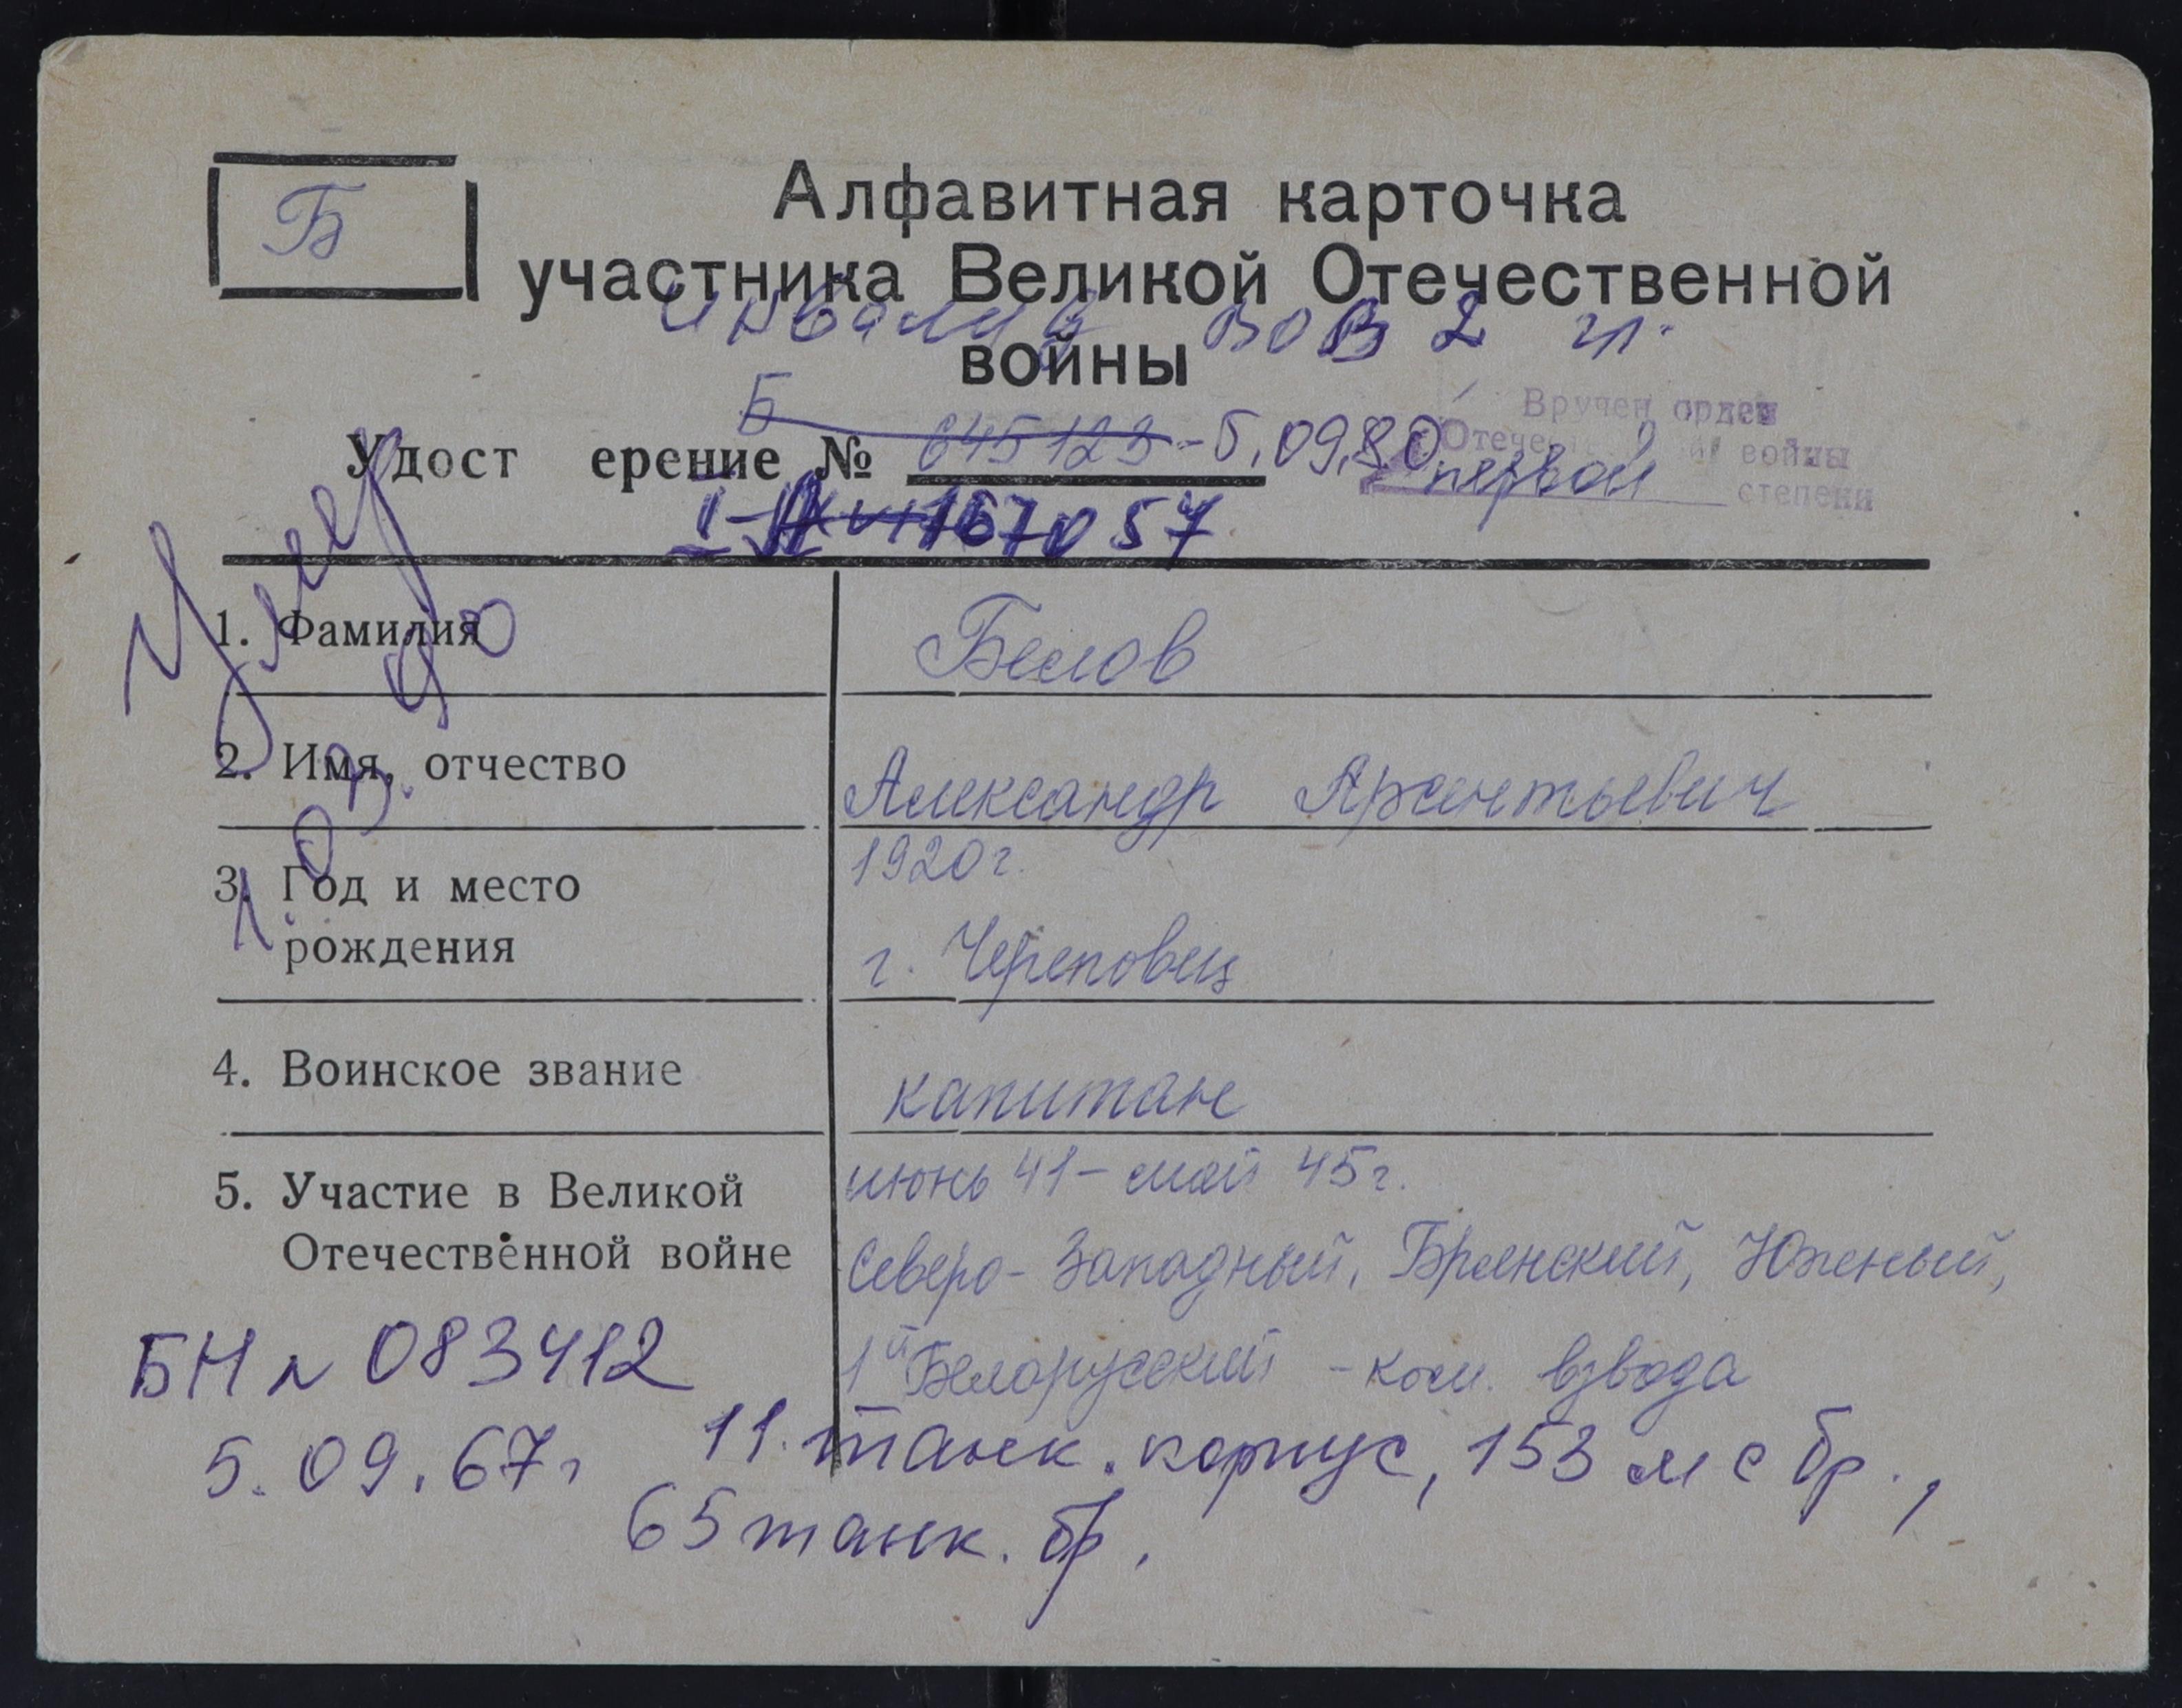 Б
Алфавитная карточка
участника Великой Отечественной
войны
инвалид ВОВ 2 гр.
Вручен орден
Отечественной войны
первой степени
Б 645123 - 5.09.80
Удост ерение №
167057
Умер
1.03.90
1. Фамилия
Белов
2. Имя, отчество
Александр Арсентьевич
3. Год и место
рождения
1920г.
г. Череповец
4. Воинское звание
капитан
5. Участие в Великой
Отечественной войне
июнь 41 - май 45г.
Северо-Западный, Брянский, Южный,
1й Белорусский - ком. взвода
11 танк. корпус, 153 мсбр.,
65 танк. бр.
БН № 083412
5.09.67г